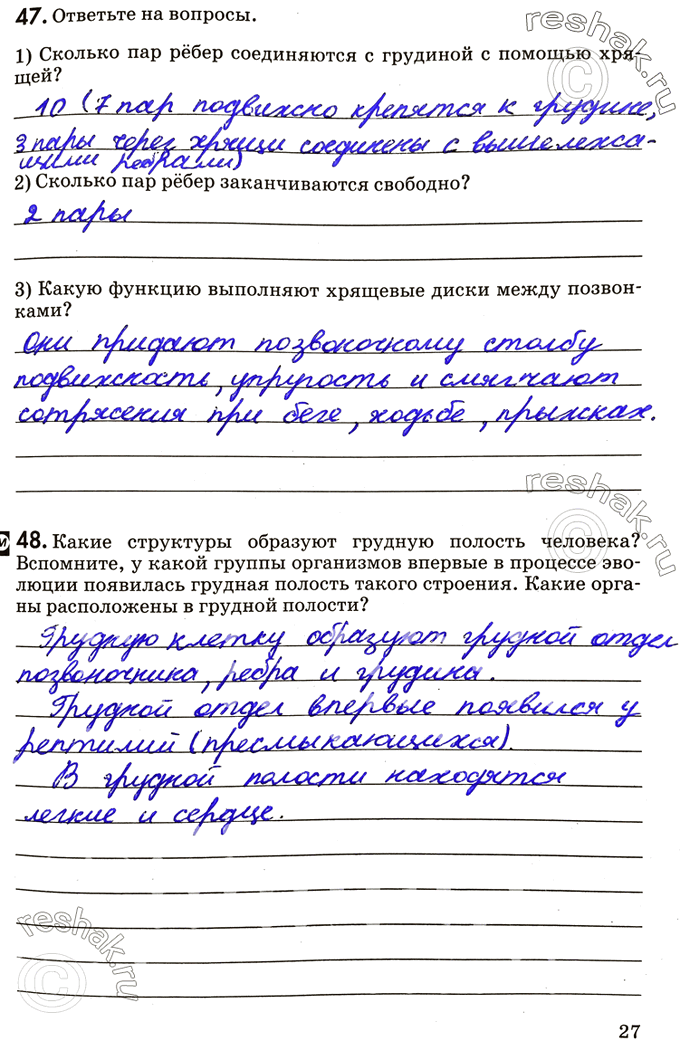 47. Ответьте на вопросы.
1) Сколько пар рёбер соединяются с грудиной с помощью хря-
щей?
10 (7 пар подвижно крепятся к грудине,
3 пары через хрящи соединены с вышележа-
щими ребрами)
2) Сколько пар рёбер заканчиваются свободно?
2 пары
3) Какую функцию выполняют хрящевые диски между позвон-
ками?
Они придают позвоночному столбу
подвижность, упругость и смягчают
сотрясения при беге, ходьбе, прыжках.
М 48. Какие структуры образуют грудную полость человека?
Вспомните, у какой группы организмов впервые в процессе эво-
люции появилась грудная полость такого строения. Какие орга-
ны расположены в грудной полости?
Грудную клетку образуют грудной отдел
позвоночника, ребра и грудина.
Грудной отдел впервые появился у
рептилий (пресмыкающихся).
В грудной полости находятся
легкие и сердце.
27
reshak.ru
reshak.ru
reshak.ru
reshak.ru